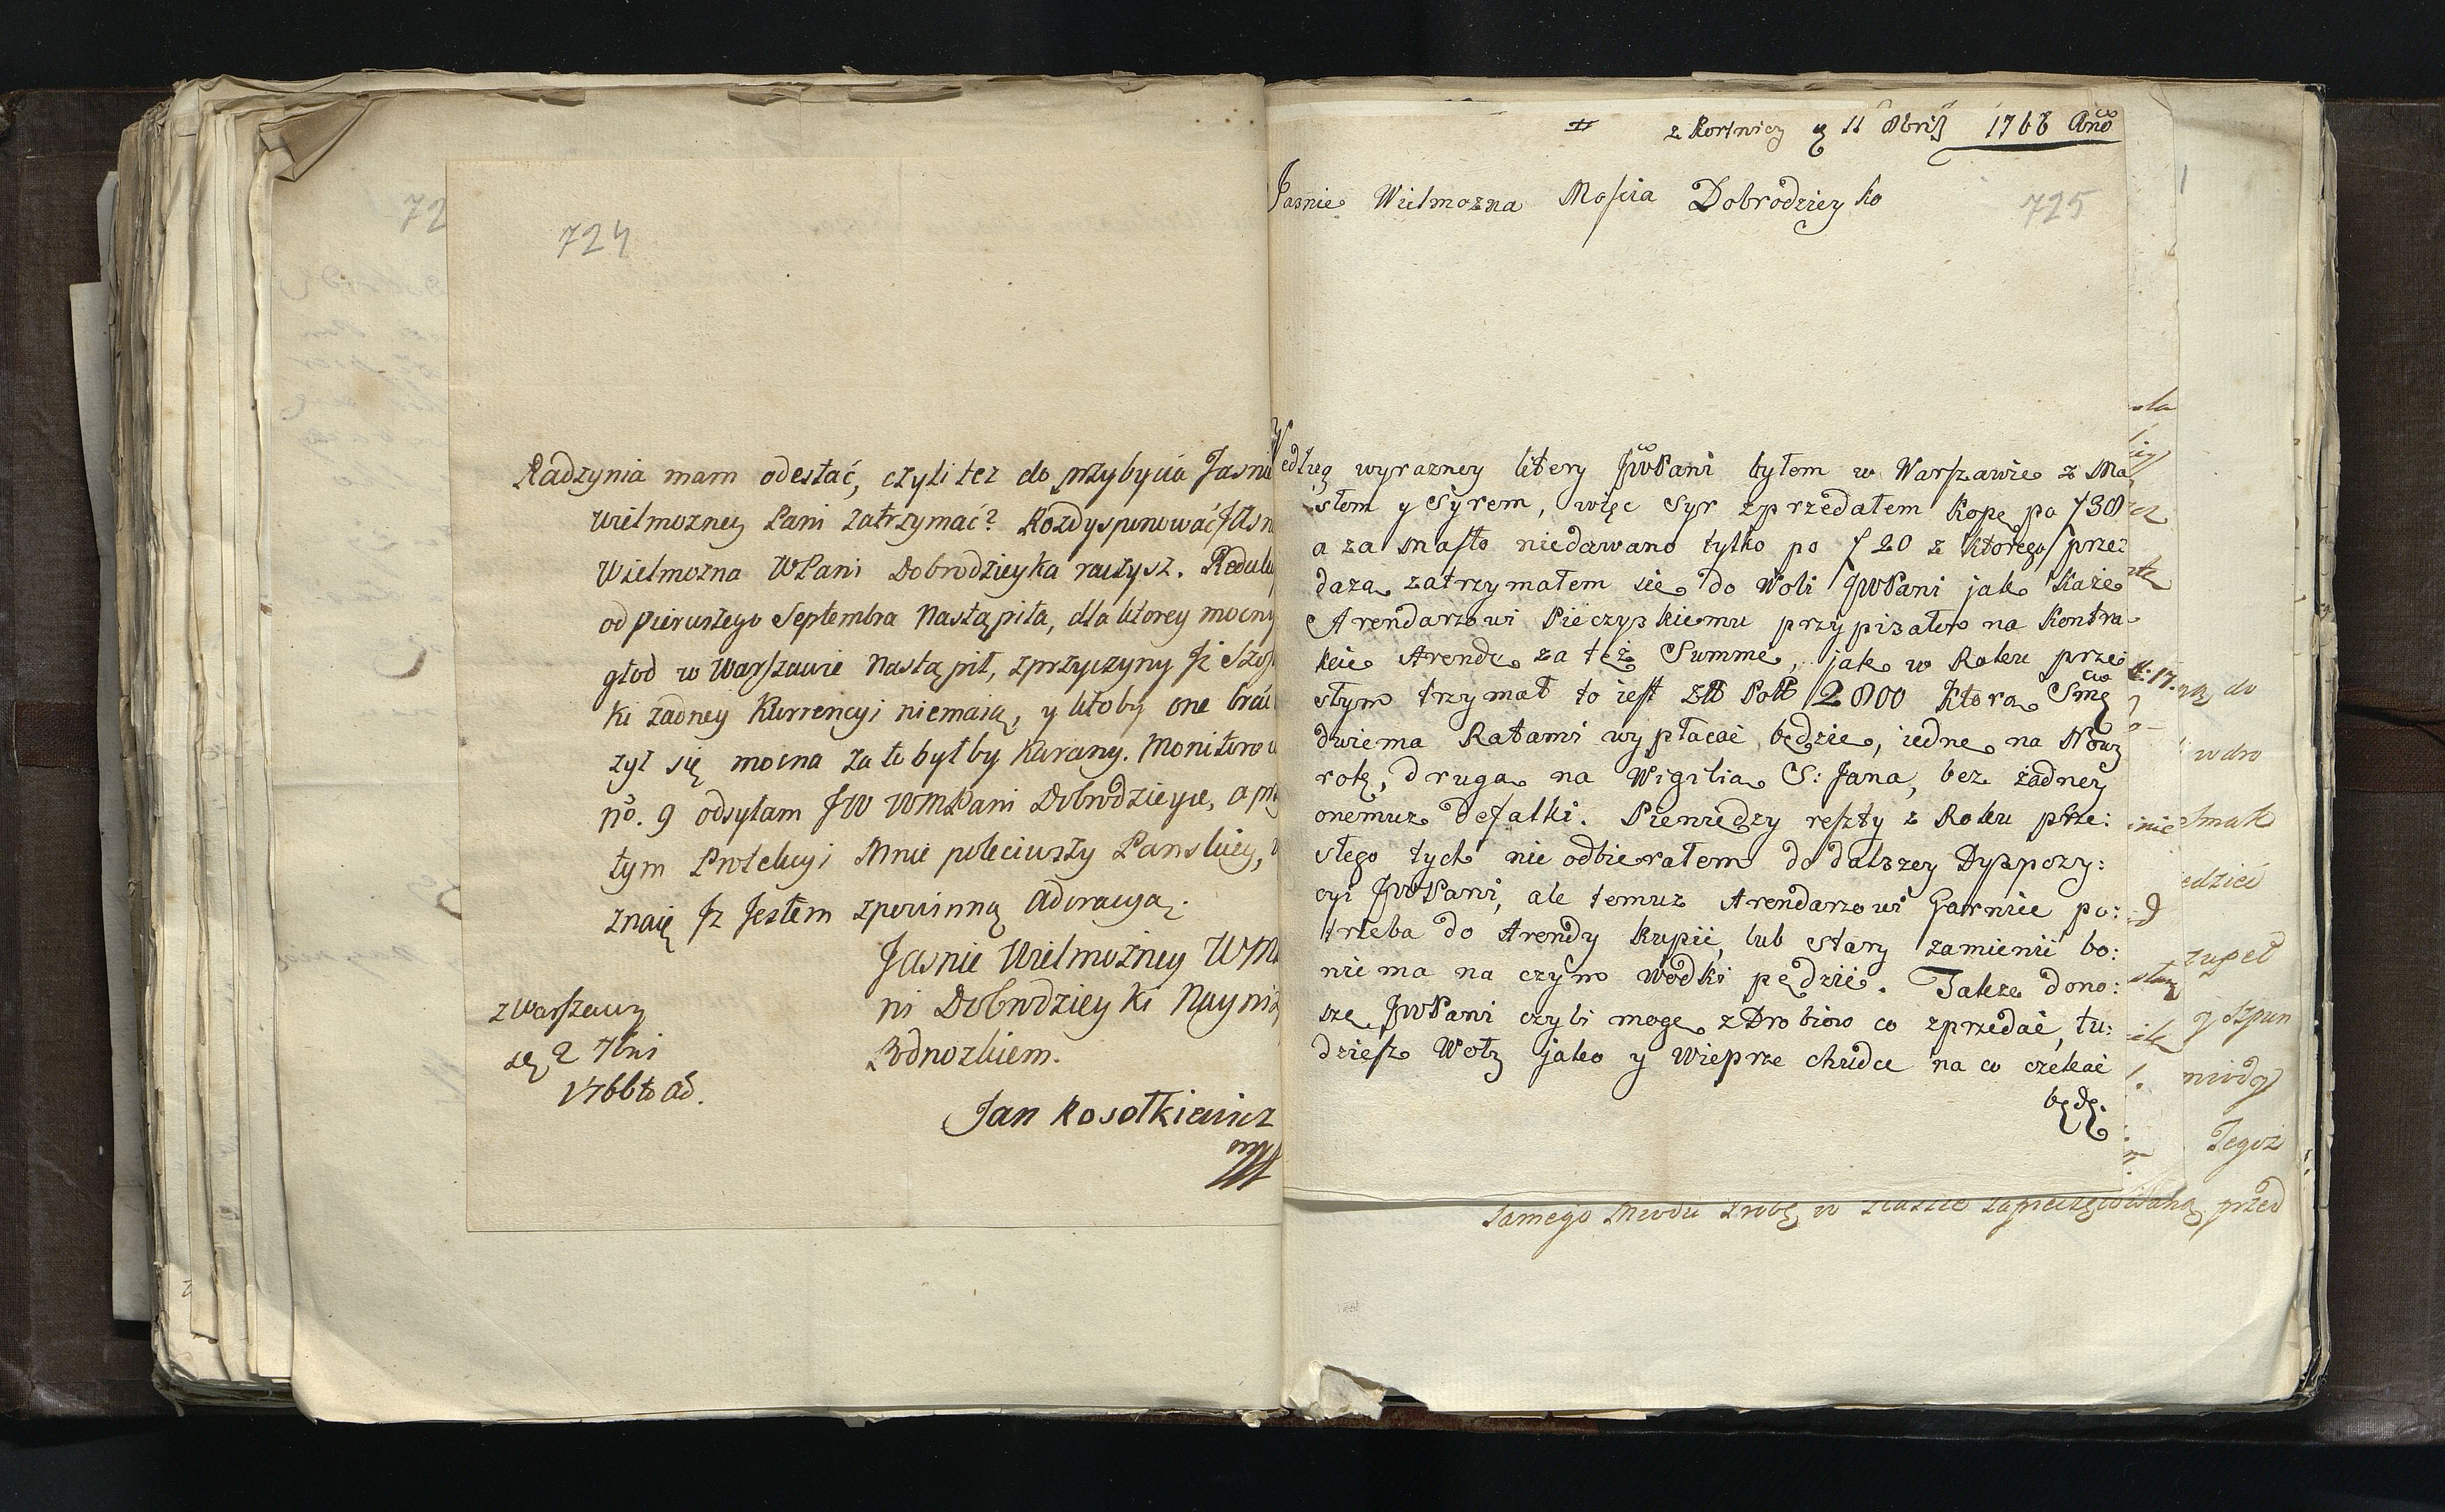 724
Radzynia mam odesłać, czyli tez do przybycia Jasnie
Wielmozney Pani zatrzymać? Rozdysponować Jasn
Wielmozna WPani Dobrodzieyka raczysz. Reduk
od pierwszego Septembra nastąpiła, dla ktorey mocny
głod w Warszawie nastąpił, z przyczyny Jz Szos
ki zadney Kurrencyi niemaią, y ktoby one brać
zył się mocna za to byłby karany. Monitorow
no. 9 odsyłam JW WMPani Dobrodzieyce, a prz
tym Protekcyi Mnie poleciwszy Panskiey,
znaię Jz Jestem z powinną Adoracyą.
Jasnie Wielmozney WM
ni Dobrodzieyki Nayniz
Podnozkiem.
z Warszawy
de 2 7bri
1766to Ao.
Jan Kosołkiewicz
mp
z Kortnicy d 11 8bris 1766 Ano
725
Jasnie Wielmozna Mościa Dobrodzieyko
Według wyrazney litery JWPani byłem w Warszawie z Ma
słem y Syrem, więc Syr zprzedałem Kopę po f 38
a za masło niedawano tylko po f 20 z ktorego przez
daza zatrzymałem sie do Woli JWPani jak Kaze
Arendarzowi Pieczyskiemu przypisałem na Kontra-
kcie Arende za tęż Summe, jak w Roku prze:
słym trzymał to iest Złł Poll 2800 Ktora Sme
dwiema Ratami wypłacać będzie, iedne na Nowy
rok, druga na Wigilia S: Jana, bez żadney
onemuz defalki. Pieniedzy reszty z Roku prze:
słego tych nie odbierałem do dalszey Dyspozy:
cyi JWPani, ale temuz Arendarzowi Garniec po:
trzeba do Arendy kupić, lub stary zamienić bo:
nie ma na czym wodki pędzić. Takze dono:
sze JWPani czyli moge z Drobiow co zprzedać, tu:
dziesz Woły jako y Wieprze chudce na co czekać
będę.
do
wdro
Smak
edzieć
zupeł
y Szpun
miody
Tegoż
samego Miodu zrobę w szaszce zapieczętowaną przed